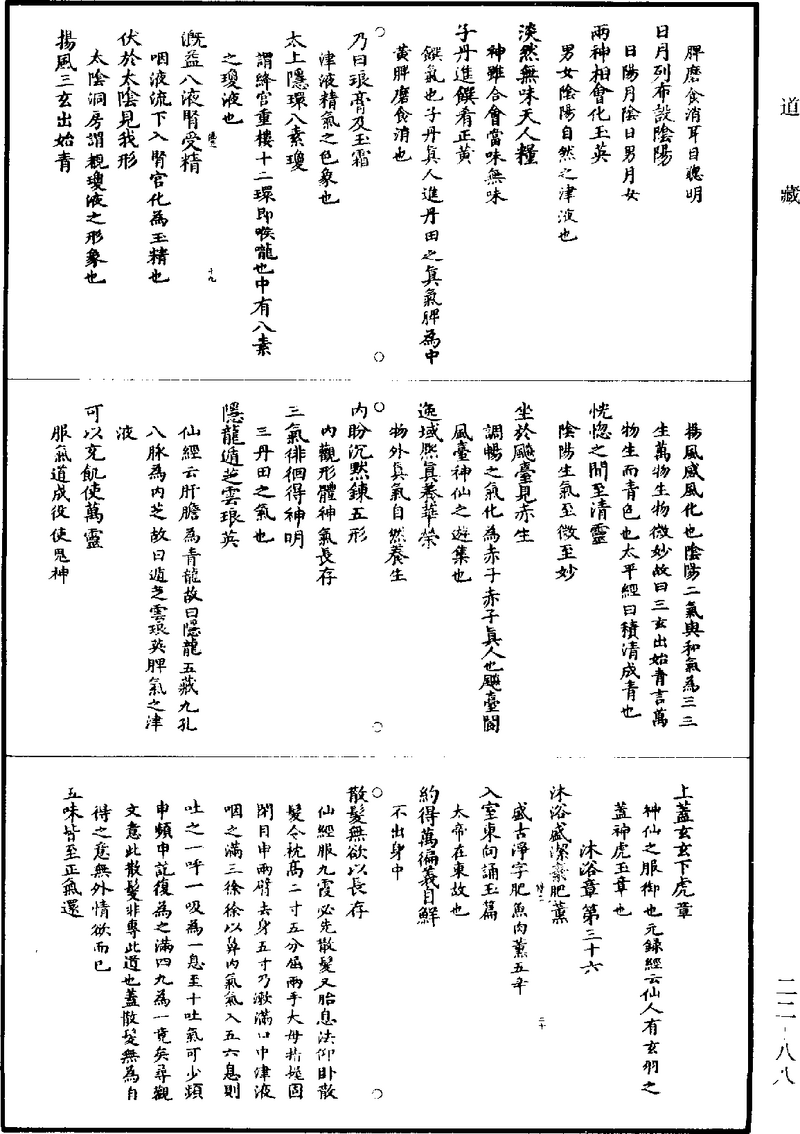 道藏
脾磨食消耳目聰明
日月列布設陰陽
日陽月陰日男月女
兩神相會化玉英
男女陰陽自然之津液也
淡然無味天人糧
神雖合會當味無味
子丹進饌肴正黃
饌氣也子丹真人進丹田之真氣脾為中
黃脾磨食消也
乃曰琅膏及玉霜
津液精氣之色象也
太上隱環八素瓊
謂絳宮重樓十二環即喉嚨也中有八素
之瓊液也
溉益八液腎受精
十九
咽液流下入腎宮化為玉精也
伏於太陰見我形
太陰洞房謂觀瓊液之形象也
揚風三玄出始青
揚風感風化也陰陽二氣與和氣為三三
生萬物生物微妙故曰三玄出始青言萬
物生而青色也太平經曰積清成青也
恍惚之間至清靈
陰陽生氣至微至妙
坐於飈臺見赤生
調暢之氣化為赤子赤子真人也飈臺閬
風臺神仙之遊集也
逸域熙真養華榮
物外真氣自然養生
內盼沉默鍊五形
內觀形體神氣長存
三氣徘徊得神明
三丹田之氣也
隱龍遁芝雲琅英
仙經云肝膽為青龍故曰隱龍五藏九孔
八脉為內芝故曰遁芝雲琅英脾氣之津
液
可以充飢使萬靈
服氣道成役使鬼神
上蓋玄玄下虎章
神仙之服御也元錄經云仙人有玄羽之
蓋神虎玉章也
沐浴章第三十六
沐浴盛潔棄肥薰
二十
盛古淨字肥魚肉薰五辛
入室東向誦玉篇
太帝在東故也
約得萬徧義自鮮
不出身中
散髮無欲以長存
仙經服九霞必先散髮又胎息法仰卧散
髮令枕高二寸五分屈兩手大母指握固
閉目申兩臂去身五寸乃漱滿口中津液
咽之滿三徐徐以鼻內氣氣入五六息則
吐之一呼一吸為一息至十吐氣可少頻
申頻申訖復為之滿四九為一竟矣尋觀
文意此散髮非專此道也蓋散髮無為自
得之意無外情欲而已
五味皆至正氣還
二二-八八